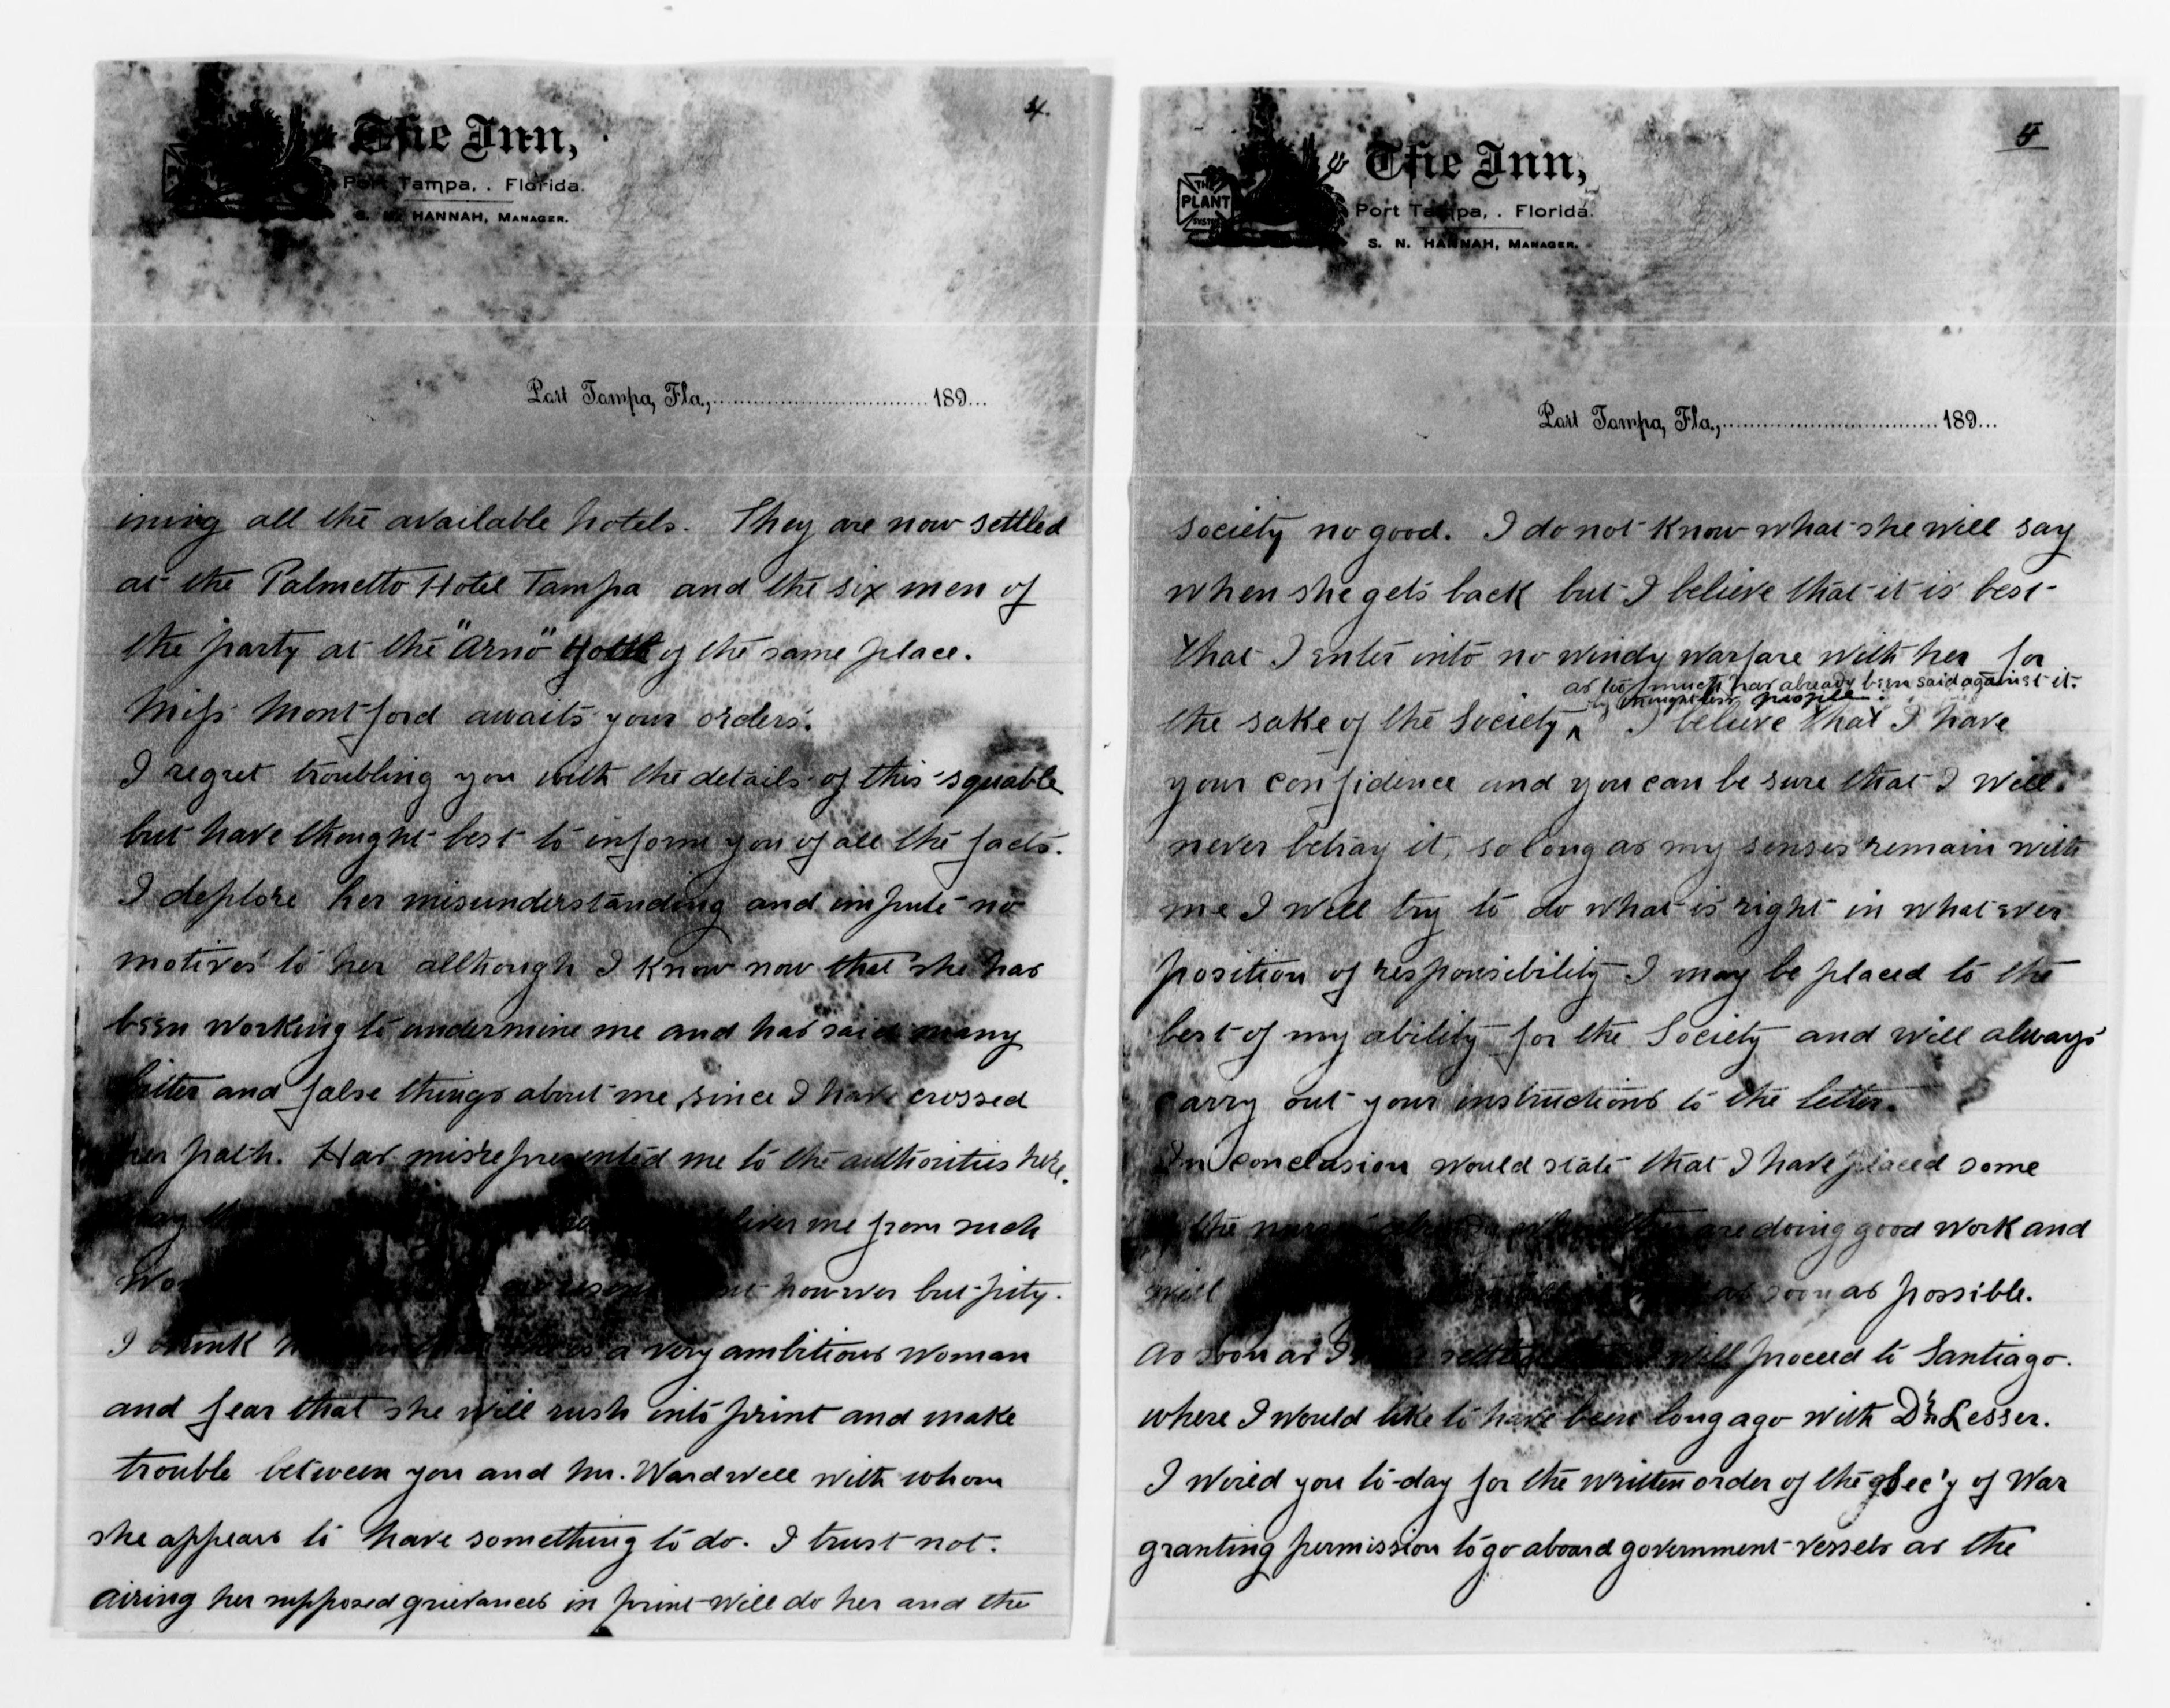 4.
The Inn,
Port Tampa, . Florida.
S. N. HANNAH, MANAGER.
Port Tampa, Fla., 189
ining all the available hotels. They are now settled
at the Palmetto Hotel Tampa and the six men of
the party at the "Arno" Hotel of the same place.
Miss Montford awaits your orders.
I regret troubling you with the details of this squable
but have thought best to inform you of all the facts.
I deplore her misunderstanding and impute no
motives to her allthough I know now that she has
been working to undermine me and has said many
bitter and false things about me, since I have crossed
her path. Has misrepresented me to the authorities here.
me from such
however but pity.
I think she is a very ambitious woman
and fear that she will rush into print and make
trouble between you and Mr. Wardwell with whom
she appears to have something to do. I trust not.
Airing her supposed grievances in print will do her and the
5
THE PLANT SYSTEM
The Inn,
Port Tampa, . Florida.
S. N. HANNAH, MANAGER.
Port Tampa, Fla., 189
society no good. I do not know what she will say
when she gets back but I believe that it is best
that I enter into no windy warfare with her for
as too much has already been said against it.
by thoughtless people.
the sake of the Society ^ I believe that I have
your confidence and you can be sure that I will
never betray it, so long as my senses remain with
me I will try to do what is right in what ever
position of responsibility I may be placed to the
best of my ability for the Society and will always
carry out your instructions to the letter.
In conclusion would state that I have placed some
the are doing good work and
will as soon as possible.
As soon as I will proceed to Santiago.
where I would like to have been long ago with Dr. Lesser.
I wired you to-day for the written order of the Sec'y of War
granting permission to go aboard government vessels as the